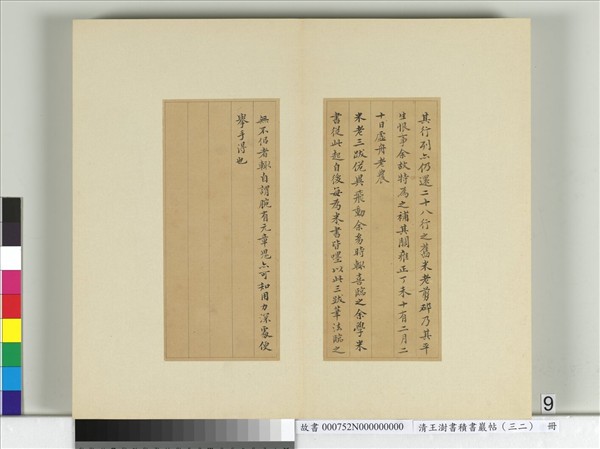 其行列亦仍還二十八行之舊米老剪
乃其平
生恨事余故特為之補其闕雍正丁未十有二月二
十日虛舟老農
米老三跋從異飛動余
時輒喜臨之余學米
書從此起自後每為米書皆
以此三跋筆法臨之
無不仍者輒自謂腕有元章鬼亦可知用力深處便
舉手得也
9
故書 000752N000000000
清王澍書積書巖帖(三二) 冊